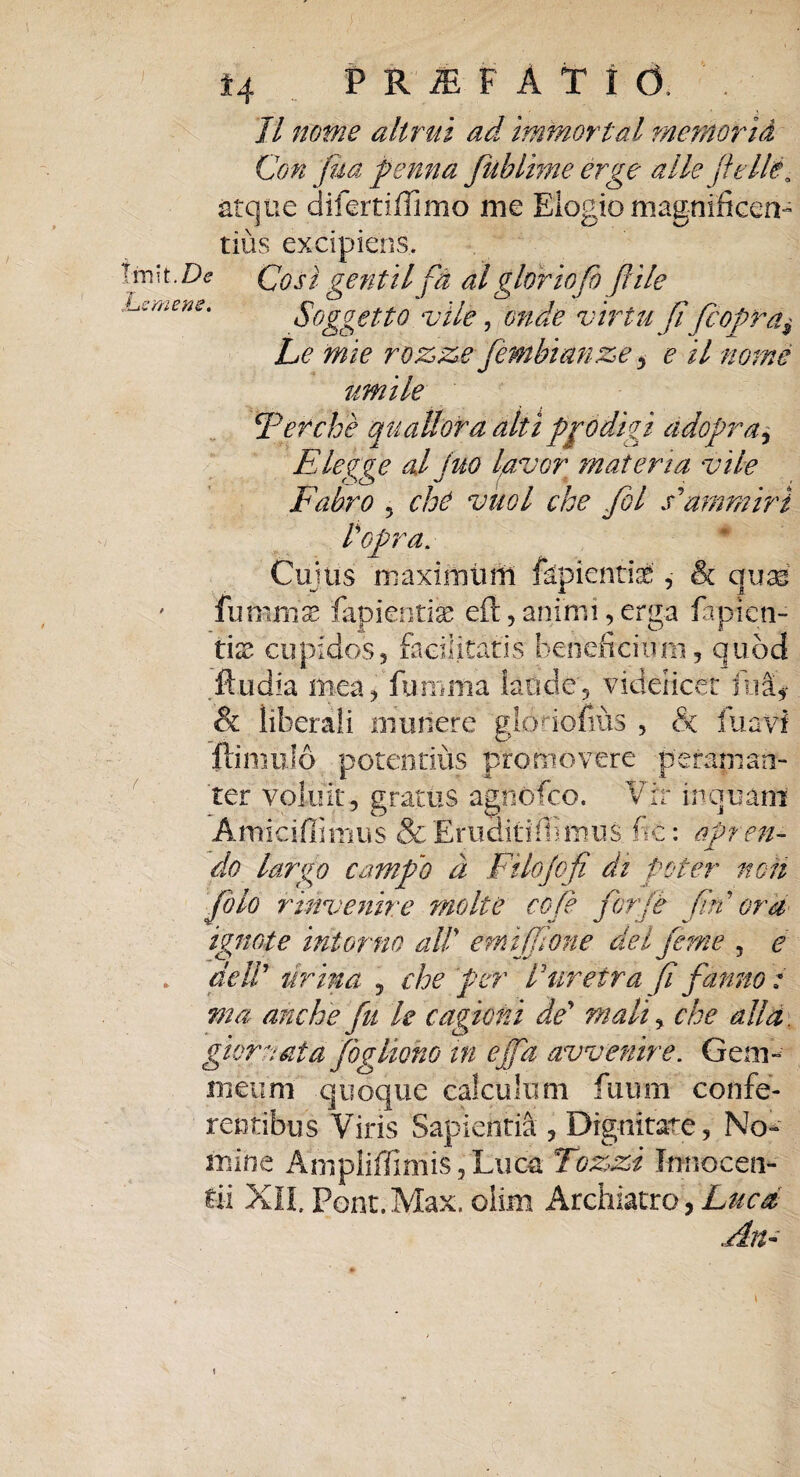 14 PRÆFATIO.
Il nome altrui ad immortal memoria
Con ſua penna ſublime erge alle ſtelle.
atque diſertiſſimo me Elogio magnificen-
tiùs excipiens.
Imit. De Così gentil fà al glorioſo ſtile
Lemene. Soggetto vile, onde virtu ſi ſcopra,
Le mie rozze ſembianze, e il nome
umile
Perchè quallora alti prodigi adopra,
Elegge al ſuo lavor materia vile
Fabro, chè vuol che ſol s'ammiri
l'opra.
Cujus maximùm ſapientiæ, & quæ
ſummæ ſapientiæ eſt, animi, erga ſapien-
tiæ cupidos, facilitatis beneficium, quòd
ſtudia mea, ſumma laude, videlicet ſuâ,
& liberali munere glorioſiùs, & ſuavi
ſtimulò potentiùs promovere peraman-
ter voluit, gratus agnoſco. Vir inquam
Amiciſſimus & Eruditiſſimus ſic: apren-
do largo campo à Filoſofi di poter non
ſolo rinvenire molte coſe forſe ſin' ora
ignote intorno all' emiſſione del ſeme, e
dell' urina, che per l'uretra ſi fanno:
ma anche ſu le cagioni de' mali, che alla
giornata ſogliono in eſſa avvenire. Gem-
meum quoque calculum ſuum confe-
rentibus Viris Sapientiâ, Dignitate, No-
mine Ampliſſimis, Luca Tozzi Innocen-
tii XII. Pont. Max. olim Archiatro, Luca
An-